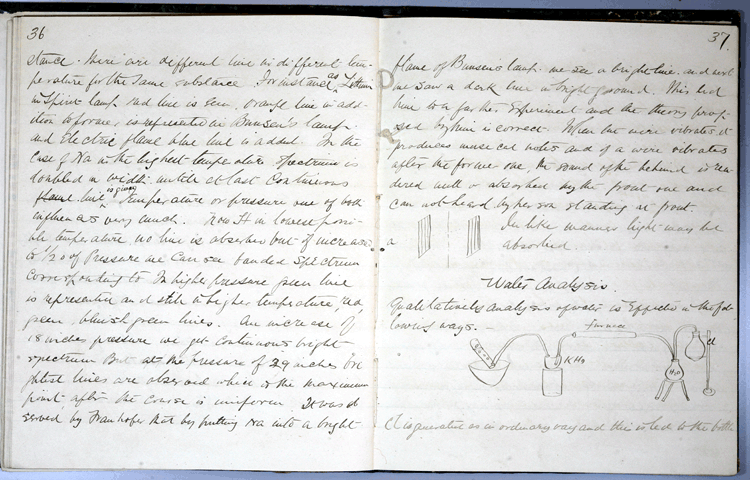 36
stance. There are different line in different tem-
perature for the same substance. For instance as Lithium
in Spirit lamp red line is seen, orange line in add-
ition to former, is represented in Bunsen's lamp
and Electric flame blue line is added. In the
case of Na in the highest temperature spectrum is
doubled in width until at last Continuous
line is given. Temperature or pressure one of both
influences very much. Now H in lowest possi-
ble temperature no line is observed but if increase
to 1/20 of Pressure we can see banded Spectrum
Corresponting to In higher pressure green line
is represented and still in higher temperature, red,
green, bluish green lines. An increase of
18 inches pressure we get continuous bright
spectrum But at the pressure of 29 inches bri-
ghtest lines are observed which is the maximum
point, after the course is uniform. It was ob
served by Fraunhofer that by putting Na into a bright
37.
flame of Bunsen's lamp we see a bright line. and next
we saw a dark line in bright ground. This led
him to a farther Experiment and the theory propo-
sed by him is correct. When the wire vibrates it
produces musical notes and if a wire vibrates
after the former one, the sound of the behind is ren-
dered null or absorbed by the front one and
can not heard by person standing at front.
a
In like manner light may be
absorbed.
Water Analysis.
Qualitatively analysis of water is Effected in the fol-
lowing ways.
furnace
KHO
H2O
Cl
Cl is generated as in ordinary way and this is led to the bottle